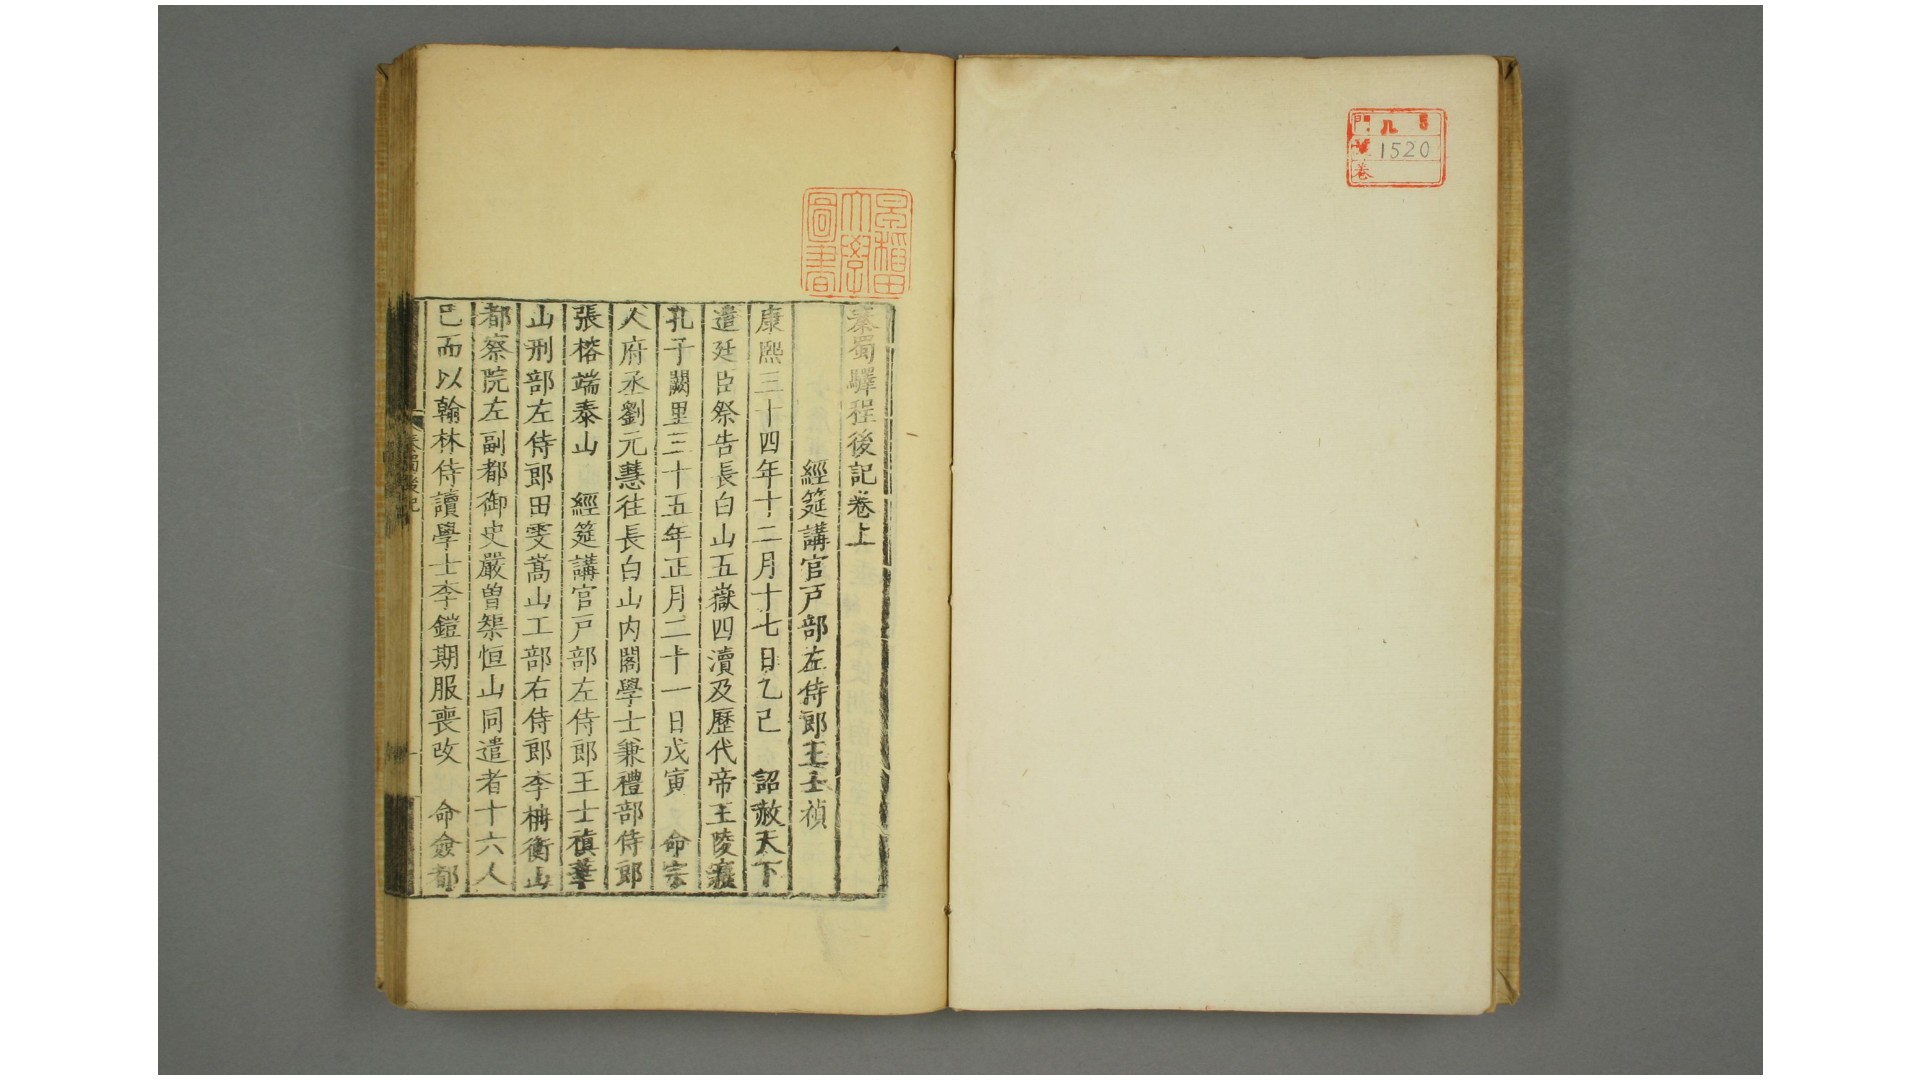 門 八 號
1520
卷
早稲田大學圖書
秦蜀驛程後記卷上
經筵講官戸部左侍郎王士禎
康熙三十四年十二月十七日乙己 詔赦天下
遣廷臣祭告長白山五嶽四瀆及歷代帝王陵寢
孔子闕里三十五年正月二十一日戊寅 命宗
人府丞劉元慧往長白山内閣學士兼禮部侍郎
張榕端泰山 經筵講官戸部左侍郎王士禛華
山刑部左侍郎田雯嵩山工部右侍郎李柟衡山
都察院左副都御史嚴曾榘恒山同遣者十六人
已而以翰林侍讀學士李鎧期服喪改 命僉都
秦蜀後記
一